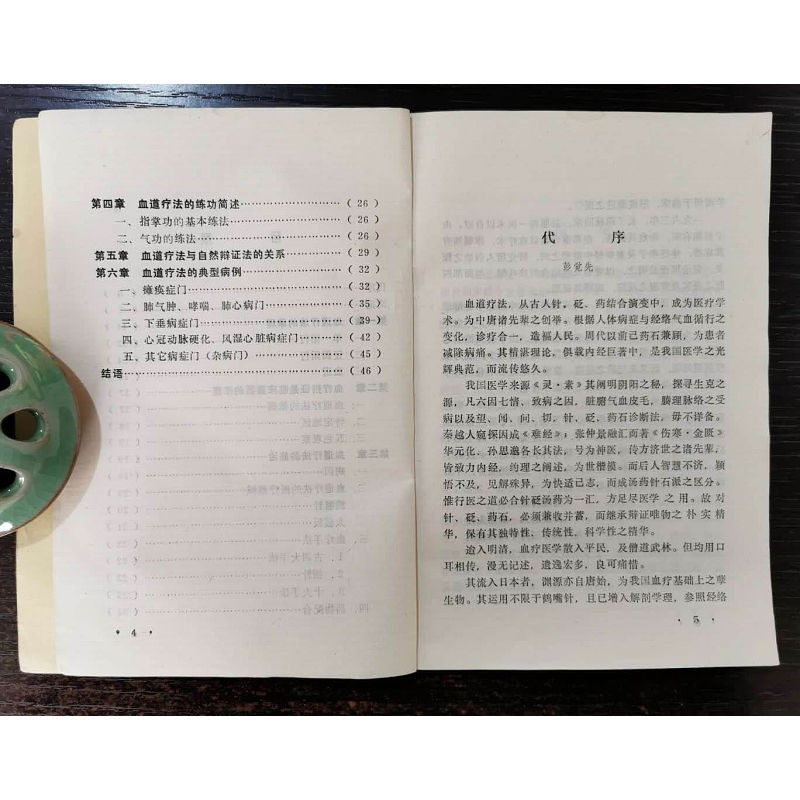 第四章　血道疗法的练功简述……………………（ 26 ）
一、指掌功的基本练法……………………………（ 26 ）
二、气功的练法……………………………………（ 26 ）
第五章　血道疗法与自然辩证法的关系…………（ 29 ）
第六章　血道疗法的典型病例……………………（ 32 ）
一、瘫痪症门………………………………………（ 32 ）
二、肺气肿、哮喘、肺心病门……………………（ 35 ）
三、下垂病症门……………………………………（ 39 ）
四、心冠动脉硬化、风湿心脏病症门……………（ 42 ）
五、其它病症门（杂病门）………………………（ 45 ）
结语…………………………………………………（ 46 ）
· 4 ·
代　序
彭觉先
血道疗法，从古人针、砭、药结合演变中，成为医疗学
术。为中唐诸先辈之创举。根据人体病症与经络气血循行之
变化，诊疗合一，造福人民。周代以前己药石兼顾，为患者
减除病痛。其精湛理论，俱载内经巨著中，是我国医学之光
辉典范，而流传悠久。
我国医学来源《灵·素》其阐明阴阳之秘，探寻生克之
源，凡六因七情、致病之因，脏腑气血皮毛，腠理脉络之受
病以及望、闻、问、切，针、砭、药石诊断法，毋不详备。
秦越人窥探因成《难经》；张仲景融汇而著《伤寒·金匮》
华元化、孙思邈各长其法，号为神医，传方济世之诸先辈，
皆致力内经，约理之阐述，为世楷模。而后人智慧不济，颖
悟不及，见解殊异，为快适己志，而成汤药针石派之区分。
惟行医之道必合针砭汤药为一汇，方足尽医学之用。故对
针、砭、药石，必须兼收并蓄，而继承辩证唯物之朴实精
华，保有其独特性，传统性，科学性之精华。
逾入明清，血疗医学散入平民，及僧道武林。但均用口
耳相传，漫无记述，遗逸宏多，良可痛惜。
其流入日本者，渊源亦自唐始，为我国血疗基础上之孽
生物。其运用不限于鹤嘴针，且已增入解剖学理，参照经络
· 5 ·